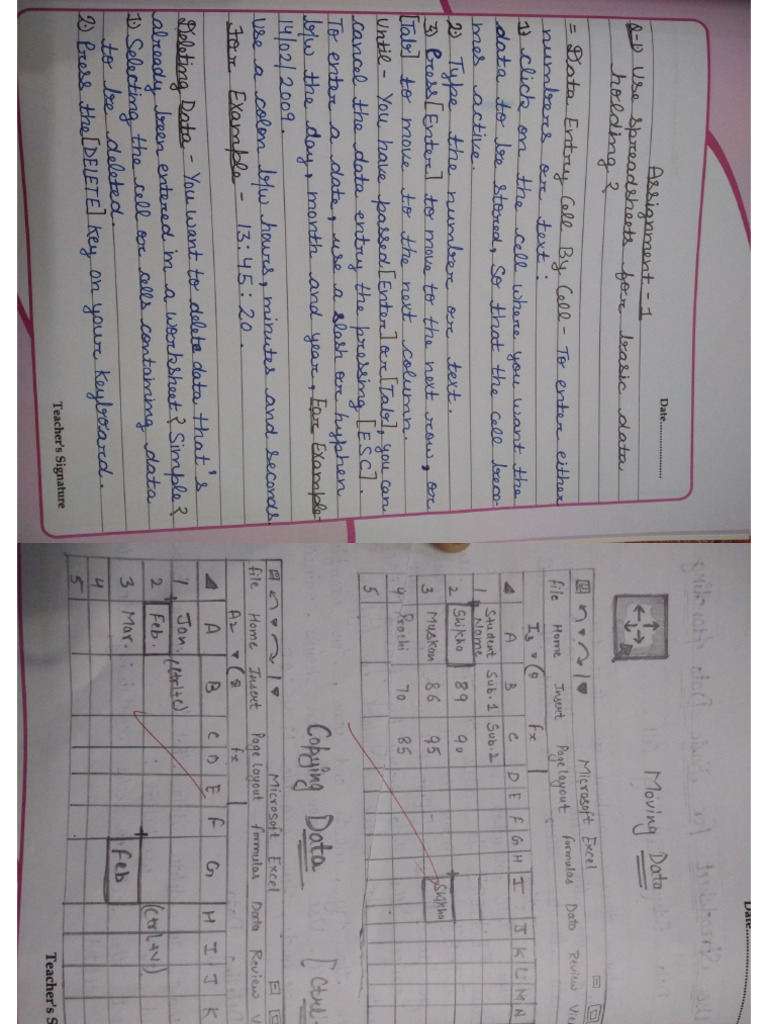 Date..................
Assignment - 1
Q-1) Use spreadsheets for basic data
holding?
= Data Entry Cell By Cell - To enter either
numbers or text:
1) Click on the cell where you want the
data to be stored, So that the cell beco-
mes active.
2) Type the number or text.
3) Press [Enter] to move to the next row, or
[Tab] to move to the next column.
Until - You have passed [Enter] or [Tab], you can
cancel the data entry the pressing [ESC].
To enter a date, use a slash or hyphen
b/w the day, month and year, For Example-
14/02/2009.
Use a colon b/w hours, minutes and seconds.
For Example - 13:45:20.
Deleting Data - You want to delete data that's
already been entered in a worksheet? Simple?
1) Selecting the cell or cells containing data
to be deleted.
2) Press the [DELETE] key on your keyboard.
Teacher's Signature
Date..................
Moving Data
Microsoft Excel
file Home Insert Pagelayout formulas Data Review Vie
fx
A B C D E F G H I J K L M N
1 Student Name Sub.1 Sub.2
2 Shikha 89 90
3 Muskan 86 95 Shikha
4 Prachi 70 85
5
Copying Data [Ctrl-
Microsoft Excel
file Home Insert Pagelayout formulas Data Review V
A2 fx
A B C D E F G H I J K
1 Jan. (Ctrl+c)
2 Feb. (Ctrl+V)
3 Mar. Feb
4
5
Teacher's S